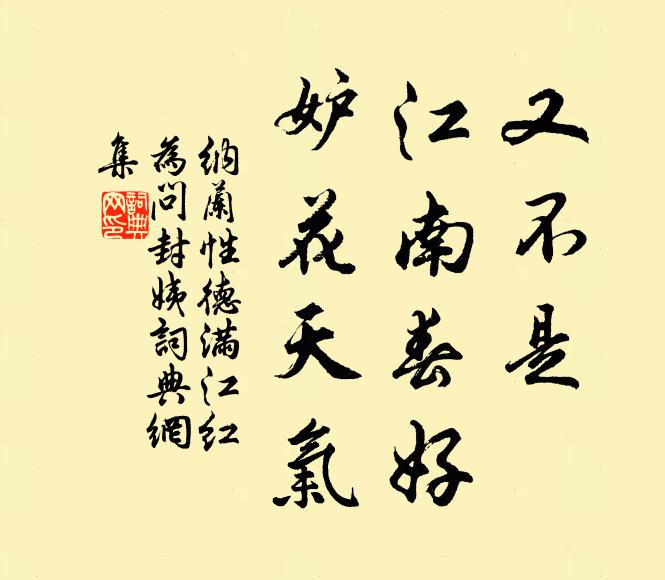 又不是
江南春好
妒花天氣
納蘭性德滿江紅
為問封姨詞典網
集
詞典
网印